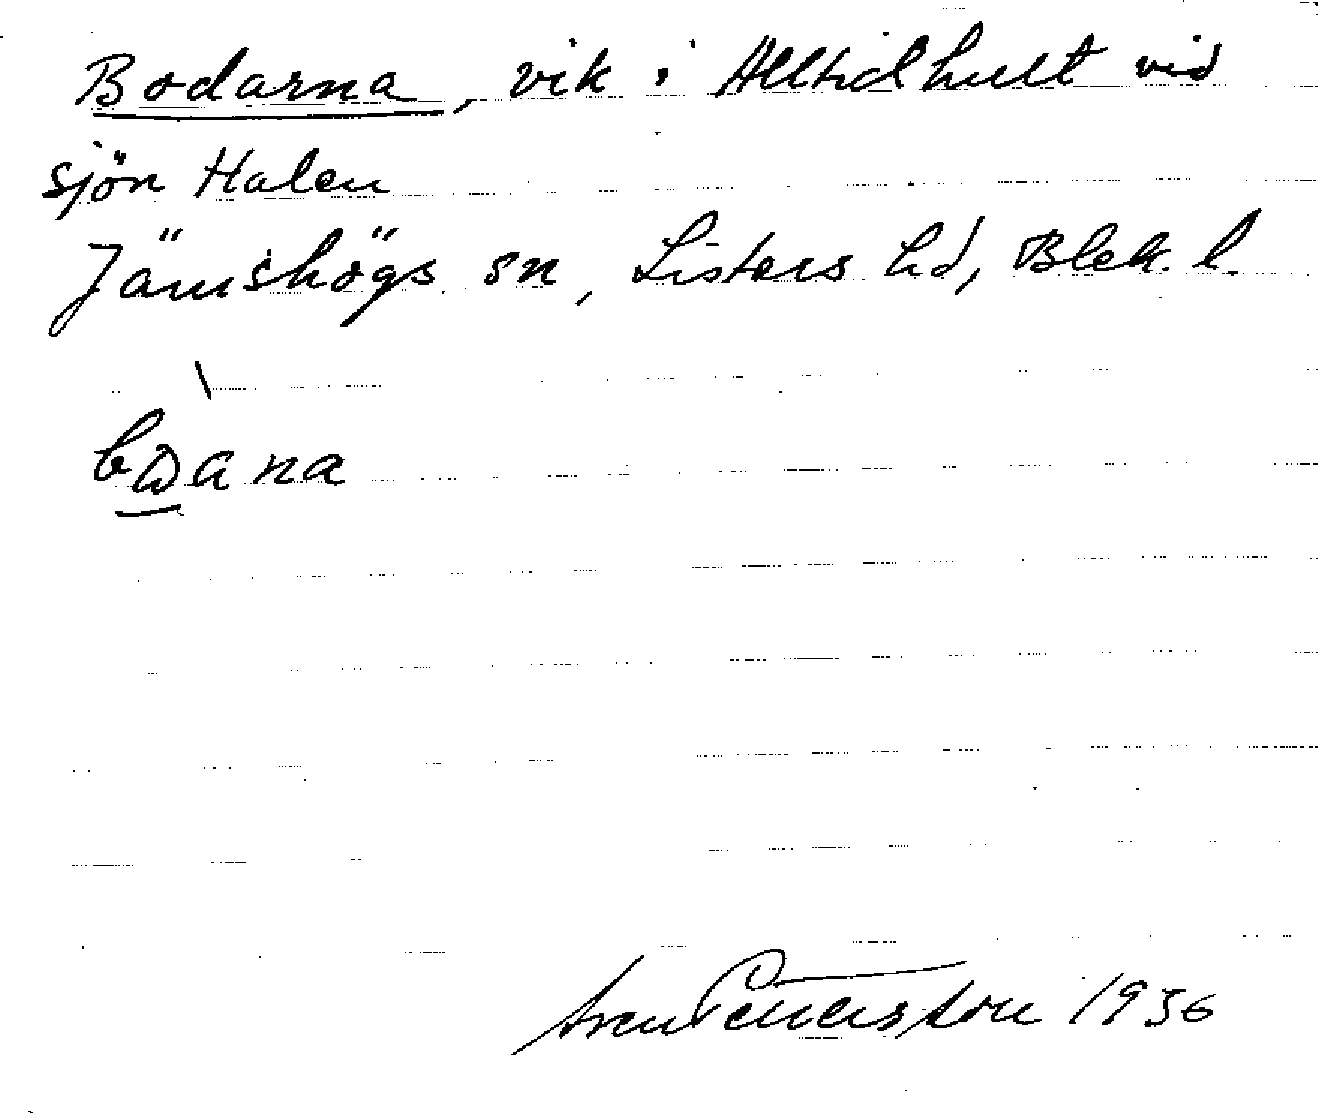 Bodarna, vik i Alltidhult vid
sjön Halen
Jämshögs sn, Listers hd, Blek. l.
bωana
Sven Pettersson 1936